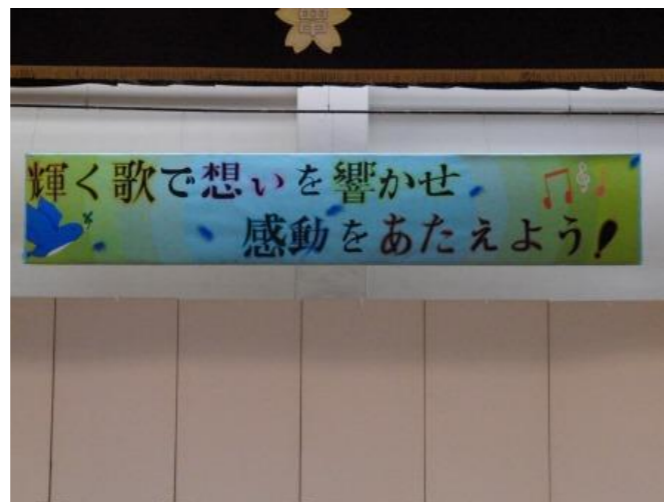 輝く歌で想いを響かせ
感動をあたえよう!